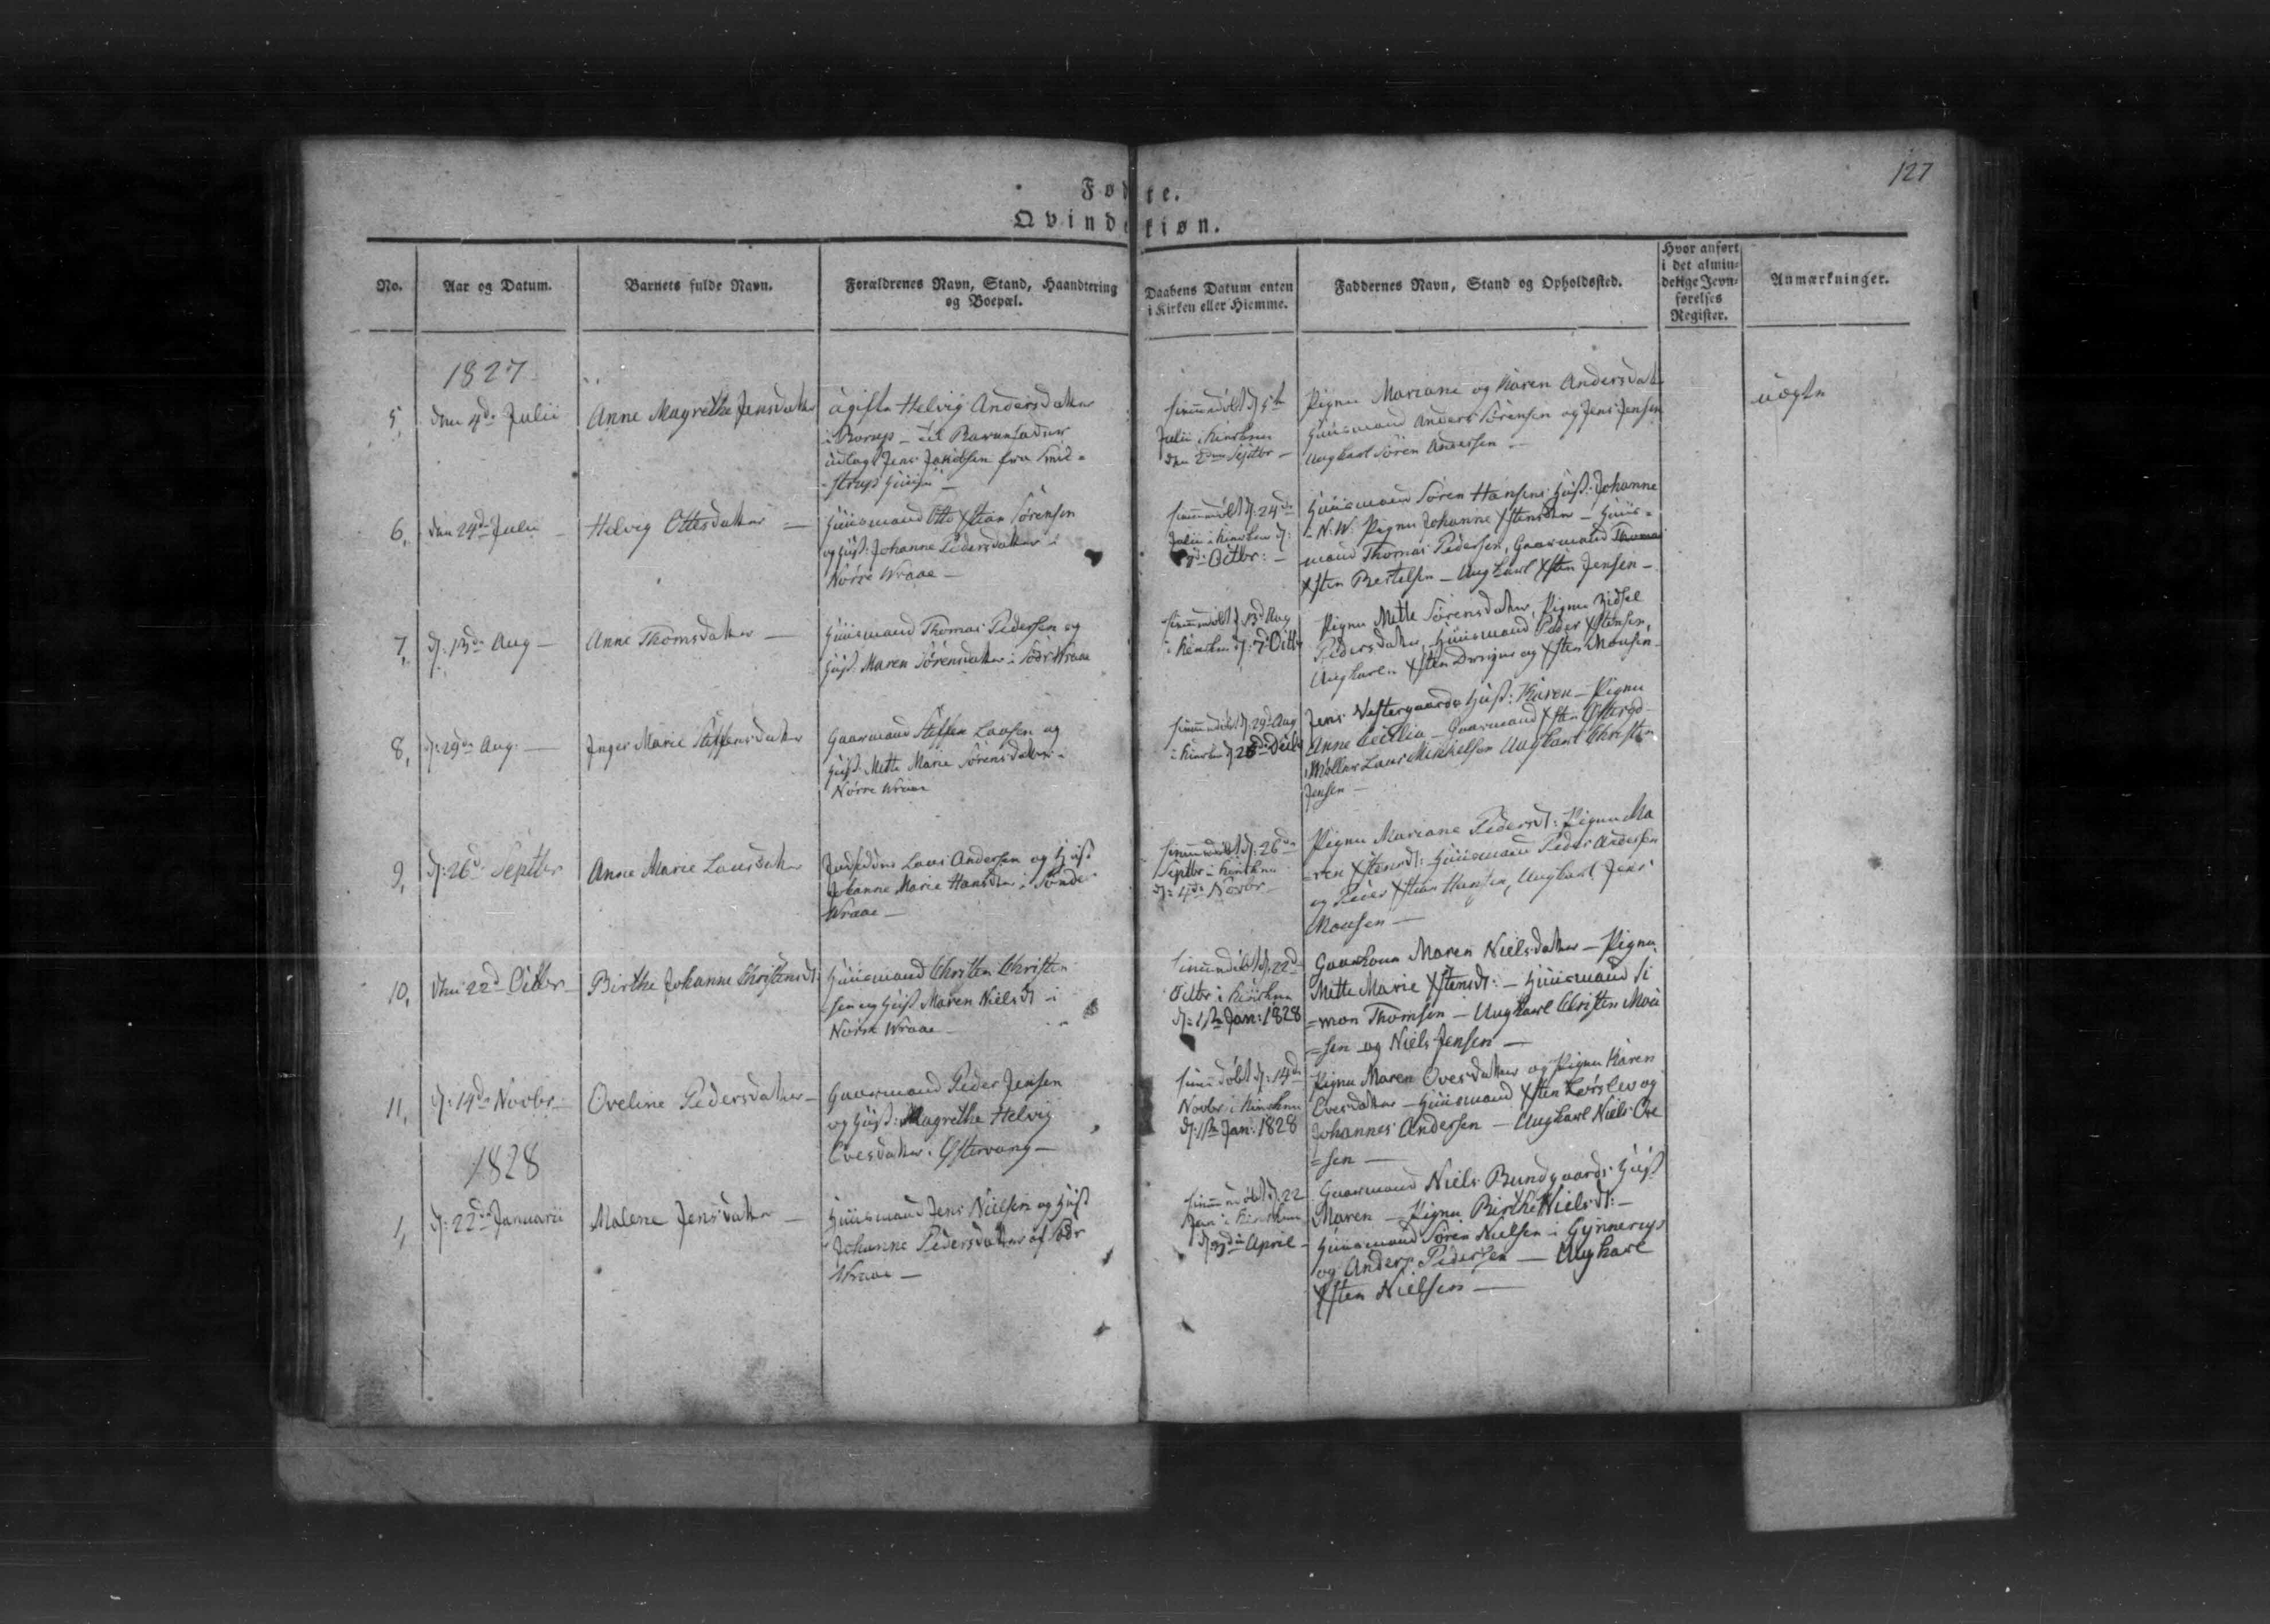 127
Fødte.
Qvindekiøn.
No.
Aar og Datum.
Barnets fulde Navn.
Forældrenes Navn, Stand, Haandtering
og Boepæl.
Daabens Datum enten
i Kirken eller Hiemme.
Faddernes Navn, Stand og Opholdssted.
Hvor anført
i det almin-
delige Jevn-
førelses
Register.
Anmærkninger.
1827
5,
den 4de Julii
Anne Magrethe Jensdatter
ugifte Helvig Andersdatter
udlagt Jens Jacobsen fra
hiemmedøbt d. 5te
Julii i Kirken
den 2den Septbr –
Pigen Mariane og Karen Andersdat
Huusmand Anders Sørensen og Jens Jensen
Ungkarl Søren Andersen –
uægte
6,
den 24de Julii
Helvig Ottesdatter –
Huusmand Otte Xstian Sørensen
og Hust: Johanne Pedersdatter i
Nørre Wraae –
hiemmedøbt d. 24de
Julii i Kirken d:
Octbr: –
Huusmand Søren Hansens Hust: Johanne
i N. W. Pigen Johanne Xstensdatter – Huus=
mand Thomas Pedersen, Gaarmand Thomas
Xsten Bertelsen – Ungkarl Xsten Jensen –
7,
d: 13de Aug –
Anne Thomsdatter –
Huusmand Thomas Pedersen og
Hust. Maren Sørensdatter i Södr Wraae
hiemmedøbt d 13de Aug
i Kirken d: 7de Octbr
Pigen Mette Sørensdatter, Pigen Zidsel
Pedersdatter, Huusmand Peder Xstensen,
Ungkarle Xsten og Xsten Mousen
8,
d: 29de Aug: –
Inger Marie Steffensdatter
Gaarmand Steffen Lausen og
Hust. Mette Marie Sørensdatter i
Nørre Wraae
hiemmedøbt d. 29de Aug
i Kirken d 26de
Jens Vestergaards Hust: Karen – Pigen
Anne Cicilia – Gaarmand Xsten
Møller Laurs Mikkelsen Ungkarl Christen
Jensen –
9,
d: 26de Septbr
Anne Marie Laursdatter
Laurs Andersen og Hust
Johanne Marie Hansdtr i Sønder
Wraae –
hiemmedøbt d. 26de
Septbr i Kirken
d: 4de Novbr –
Pigen Mariane Pedersdt: Pigen Ma
=ren Xstensdt: Huusmand Peder Andersen
og Peder Xstian Hansen, Ungkarl Jens
Mousen –
10,
den 22de Octbr –
Birthe Johanne Christensdt:
Huusmand Christen Christen
=sen og Hust Maren Nielsdt i
Nørre Wraae –
hiemmedøbt d. 22de
Octbr i Kirken
d: 1ste Jan: 1828
Gaarkone Maren Nielsdatter – Pigen
Mette Marie Xstensdt: – Huusmand Si
=mon Thomsen – Ungkarl Christen Mou
=sen og Niels Jensen –
11,
d: 14de Novbr –
Oveline Pedersdatter –
Gaarmand Peder Jensen
og Hust: Magrethe Helvig
Ovesdatter i Østervang –
hiem døbt d: 14de
Novbr i Kirken
d: 1ste Jan: 1828
Pigen Maren Ovesdatter og Pigen Karen
Ovesdatter – Huusmand Xsten Lørslev og
Johannes Andersen – Ungkarl Niels Ove
=sen –
1828
1,
d: 22de Januarii
Malene Jensdatter –
Huusmand Jens Nielsen og Hust
Johanne Pedersdatter af Södr
Wraae –
hiemmedøbt d. 22
Jan i Kirken
April –
Gaarmand Niels Bundgaards Hust
Maren – Pigen Birthe Nielsdt: –
Huusmand Søren Nielsen i Gynnerup
og Anders Pedersen – Ungkarl
Xsten Nielsen –